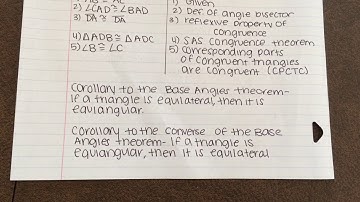 1) Given
2) ∠CAD ≅ ∠BAD 2) Def of angle bisector
3) DA ≅ DA 3) reflexive property of
congruence
4) △ADB ≅ △ADC 4) SAS Congruence theorem
5) ∠B ≅ ∠C 5) Corresponding parts
of congruent triangles
are congruent (CPCTC)
Corollary to the Base Angles theorem-
If a triangle is equilateral, then it is
equiangular.
Corollary to the Converse of the Base
Angles theorem- If a triangle is
equiangular, then it is equilateral